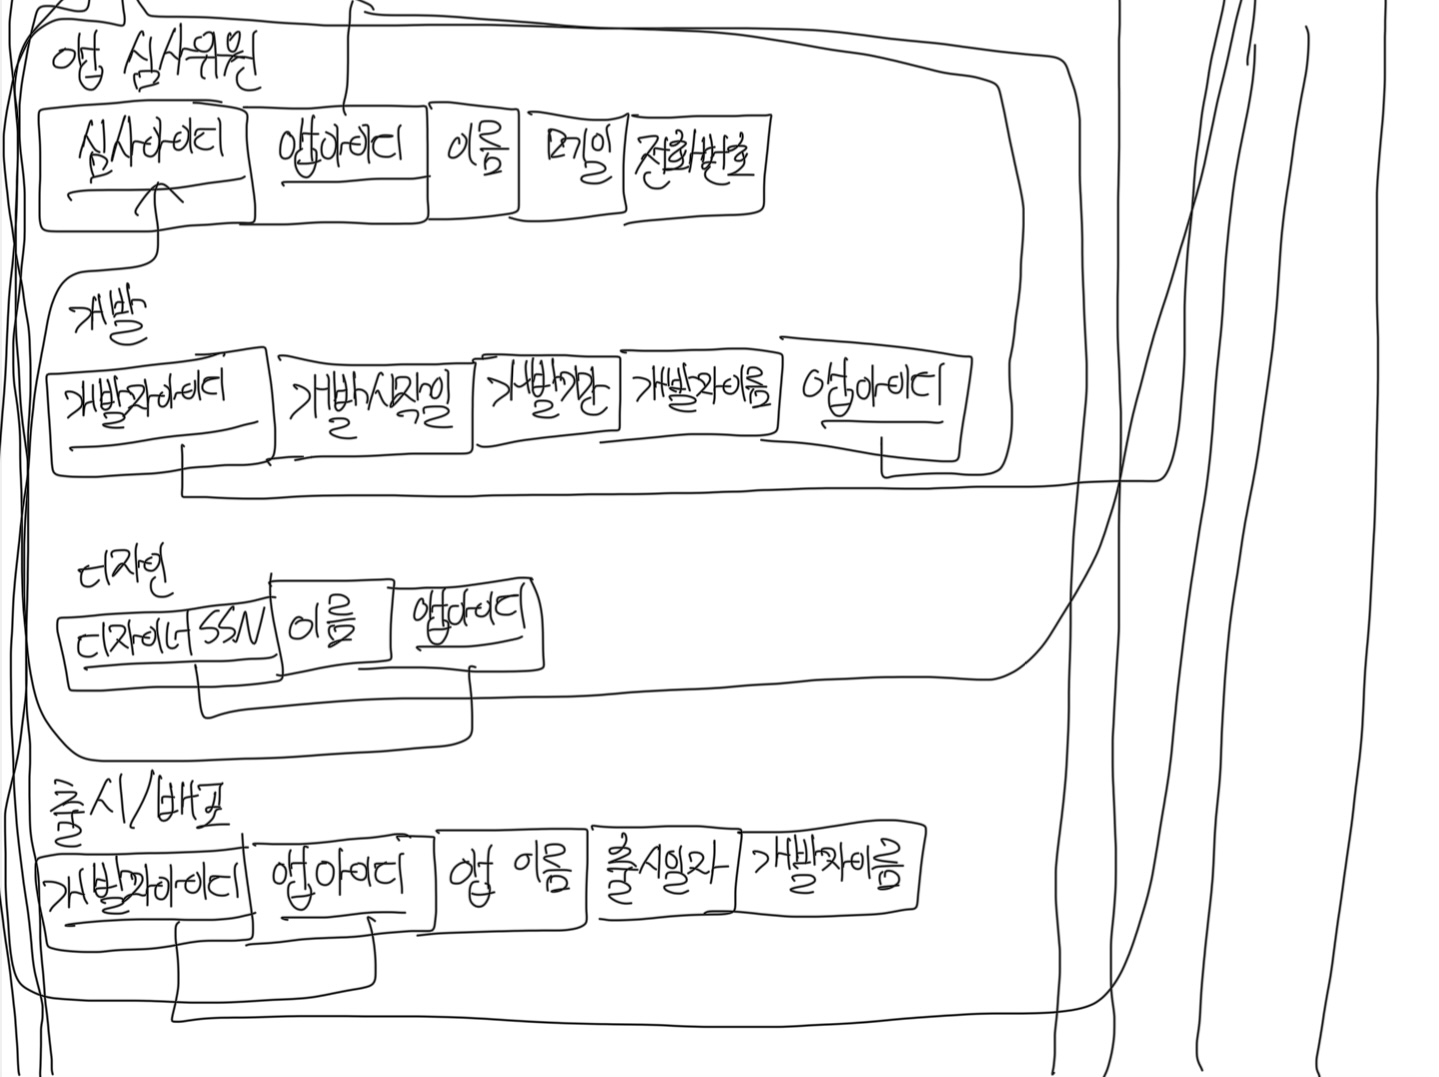 앱 심사위원
심사아이디 앱아이디 이름 메일 전화번호
개발
개발자아이디 개발시작일 개발기간 개발자이름 앱아이디
디자인
디자이너SSN 이름 앱아이디
출시/배포
개발자아이디 앱아이디 앱 이름 출시일자 개발자이름